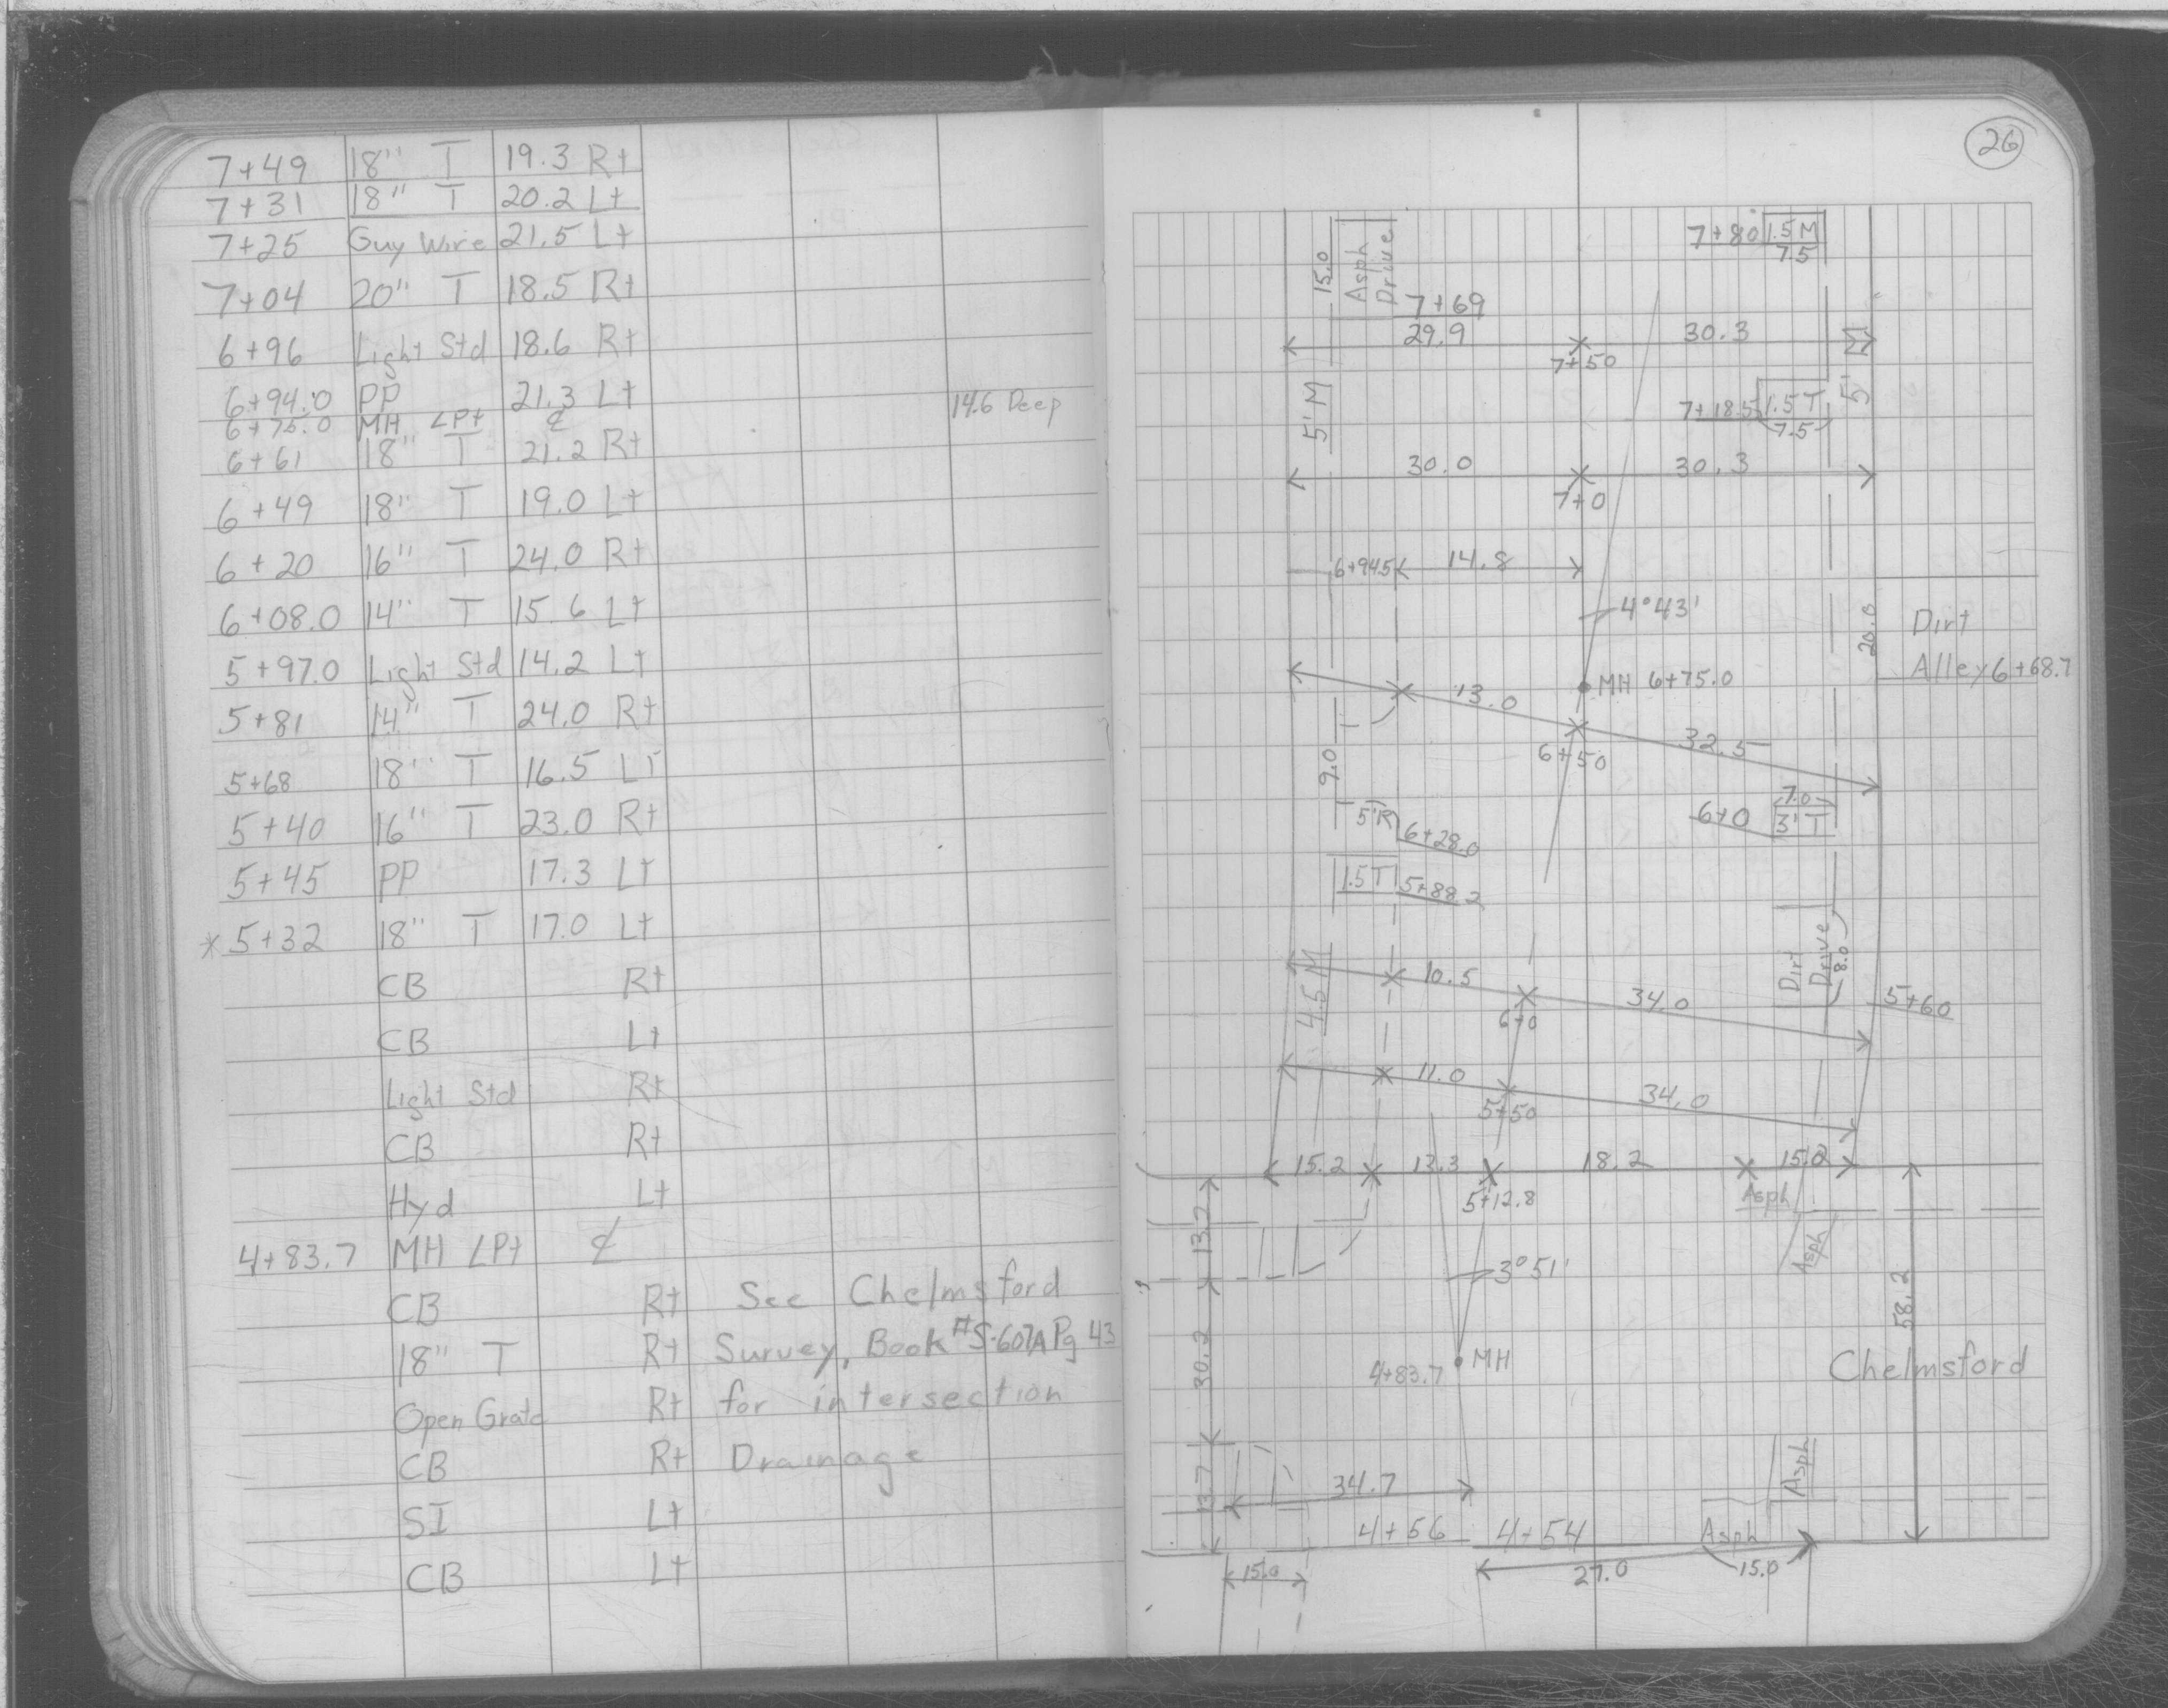 7+49 18" T 19.3 Rt
7+31 18" T 20.2 Lt
7+25 Guy Wire 21.5 Lt
7+04 20" T 18.5 Rt
6+96 Light Std 18.6 Rt
6+94.0 PP 21.3 Lt
6+75.0 MH LPt ȼ 14.6 Deep
6+61 18" T 21.2 Rt
6+49 18" T 19.0 Lt
6+20 16" T 24.0 Rt
6+08.0 14" T 15.6 Lt
5+97.0 Light Std 14.2 Lt
5+81 14" T 24.0 Rt
5+68 18" T 16.5 Lt
5+40 16" T 23.0 Rt
5+45 PP 17.3 Lt
*5+32 18" T 17.0 Lt
CB Rt
CB Lt
Light Std Rt
CB Rt
Hyd Lt
4+83.7 MH LPt ȼ
CB Rt See Chelmsford
18" T Rt Survey, Book #S-607A Pg 43
Open Grate Rt for intersection
CB Rt Drainage
SI Lt
CB Lt
26
7+80 1.5 M
7.5
15.0
Asph
Drive
7+69
29.9 30.3
7+50
5' M
5' M
7+18.5 1.5 T
7.5
30.0 30.3
7+0
6+94.5 14.8
4°43'
20.0
Dirt
Alley 6+68.7
MH 6+75.0
13.0
32.5
6+50
9.0
T
7.0
6+0 3' T
5'R 6+28.0
1.5 T 5+88.2
Dirt
Drive
8.0
4.5 M
10.5 34.0
6+0
5+60
11.0 34.0
5+50
15.2 13.3 18.2 15.2
5+12.8
Asph
Asph
13.2
3°51'
58.2
30.2
4+83.7 MH
Chelmsford
13.7
34.7
Asph
4+56 4+54 Asph
15.0 27.0 15.0